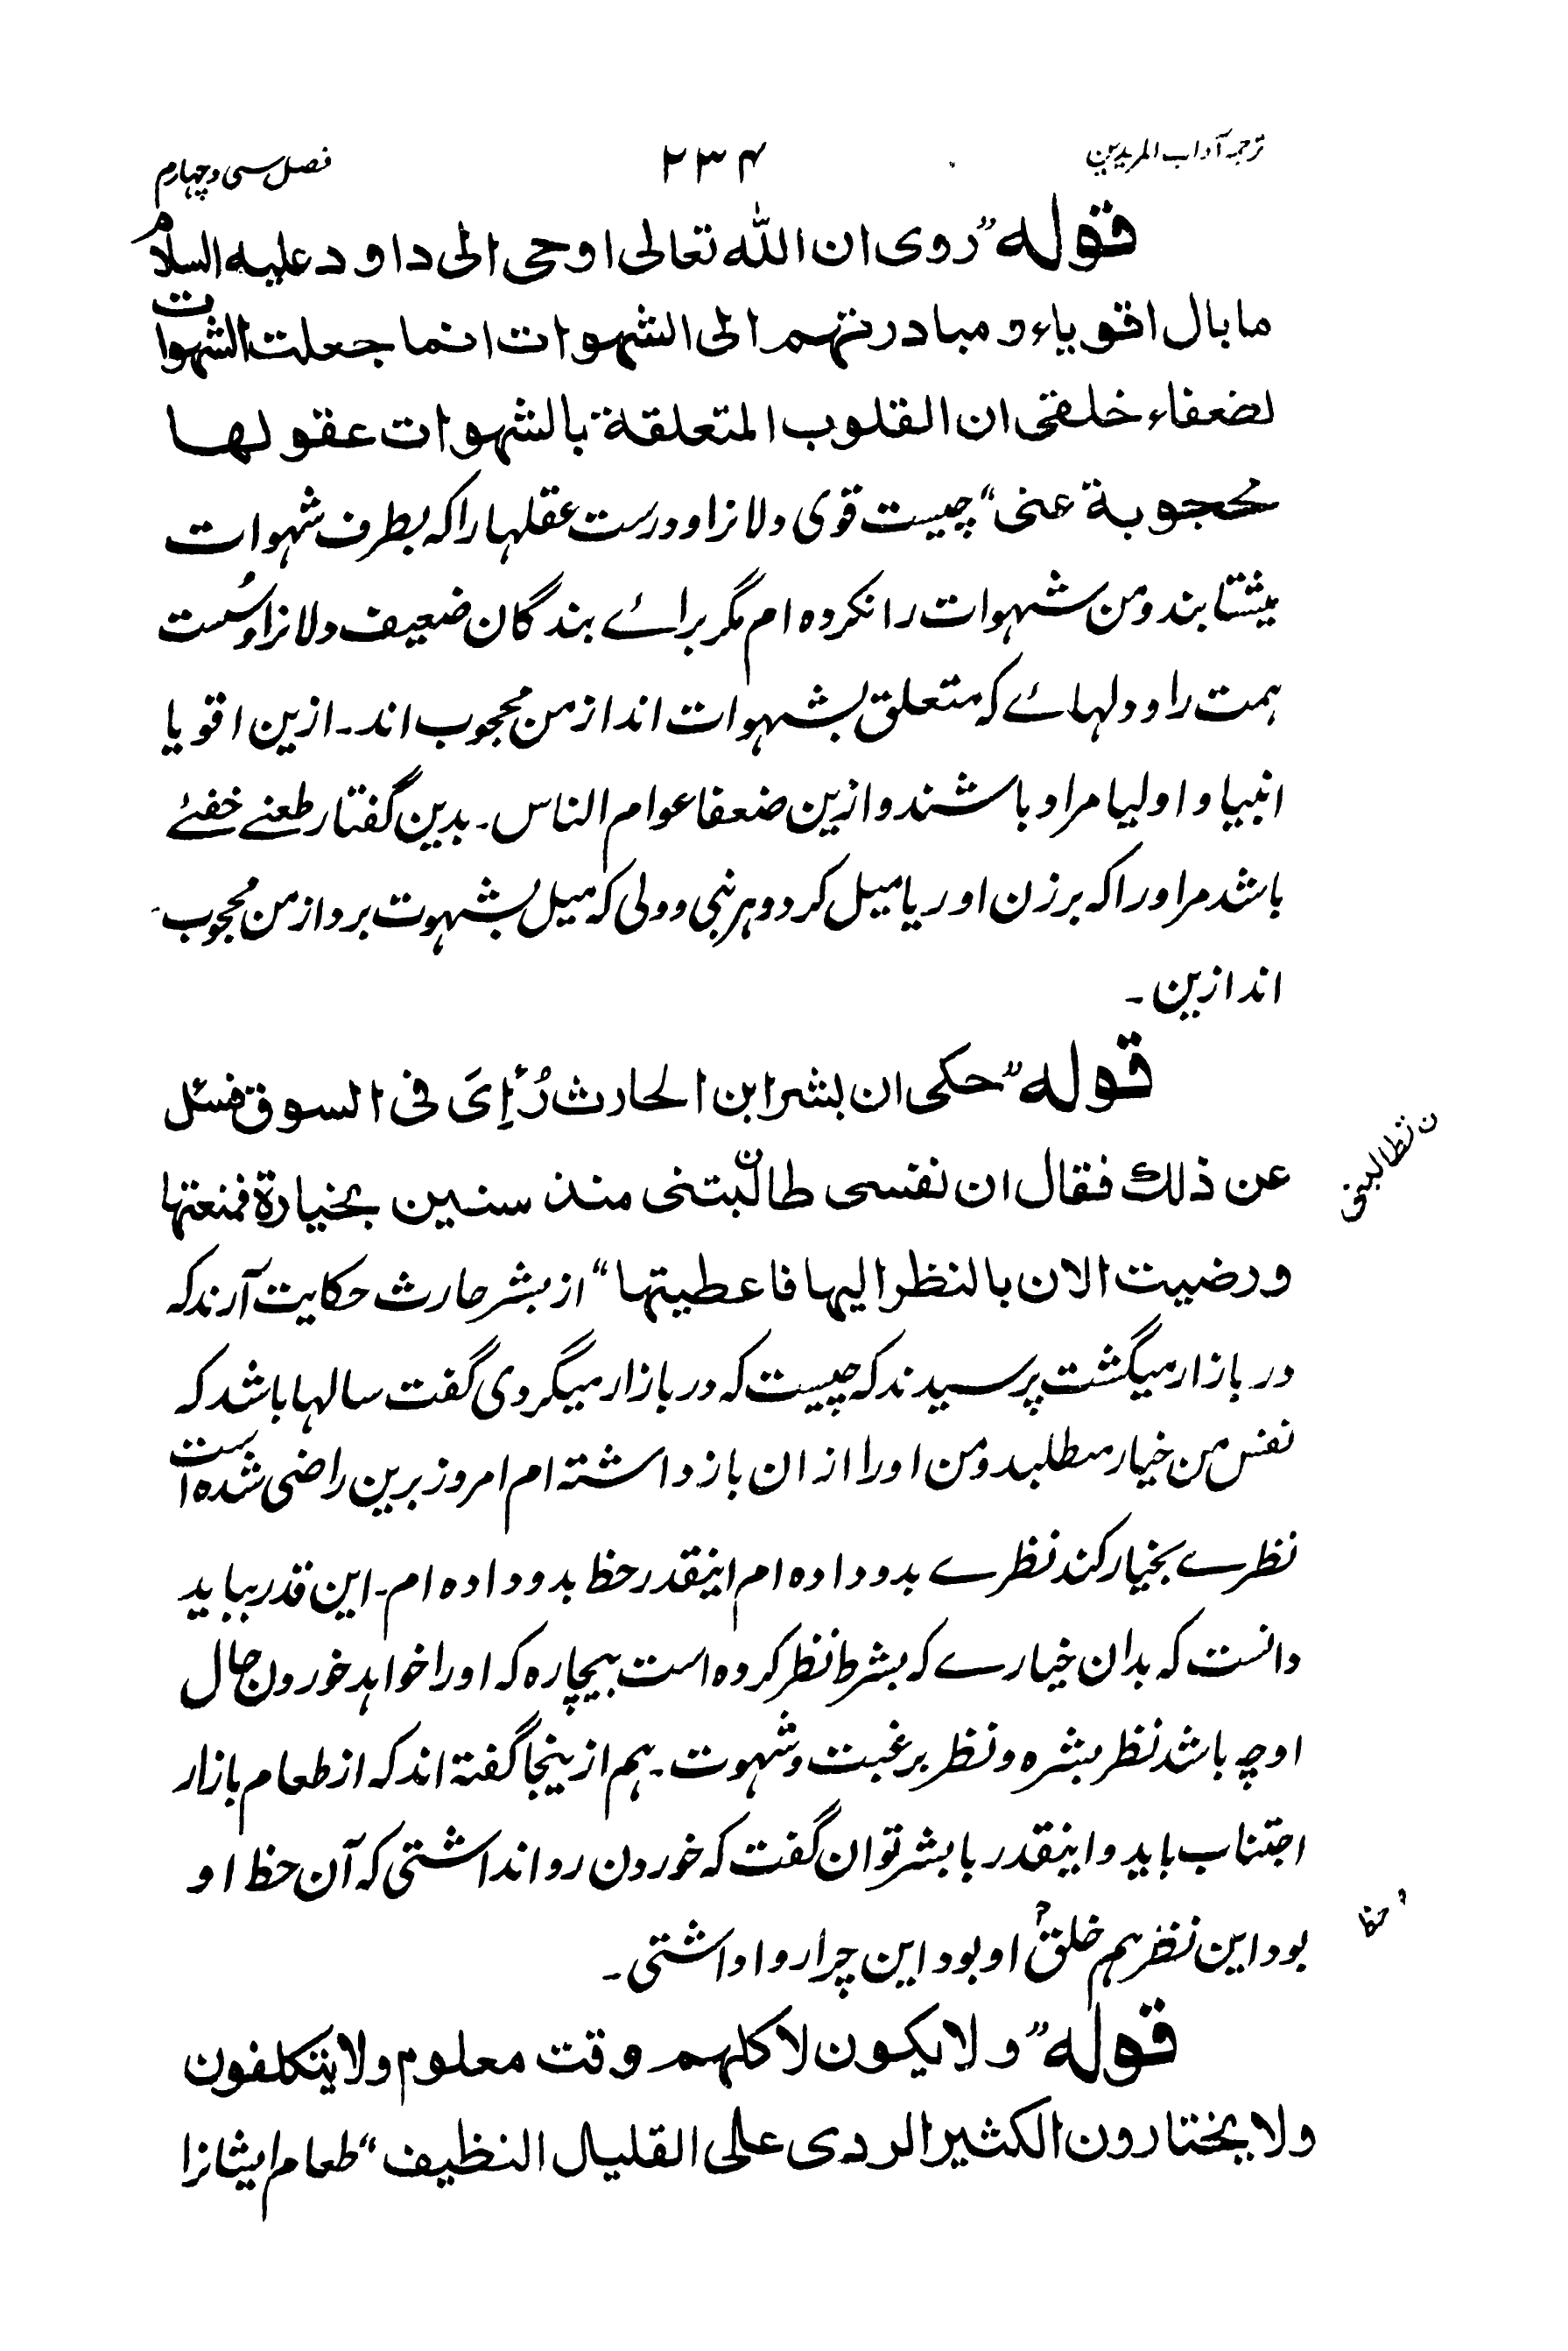 ترجمہ آداب المریدین ۲۳۴ فصل سی وچہارم
قوله "روی ان الله تعالی اوحی الی داود علیه السلام
ما بال اقویاء ومبادرتهم الی الشهوات انما جعلت الشهوات
لضعفاء خلقی ان القلوب المتعلقة بالشهوات عقولها
محجوبة عنی" چیست قوی دلانرا و درست عقلہا را که بطرف شہوات
بیشتابند ومن شہوات را نکرده ام مگر برائے بندگان ضعیف دلانرا وسُست
ہمت را و دلہائے که متعلق بشہوات اند از من محجوب اند۔ ازین اقویا
انبیا و اولیا مراد باشند وازین ضعفا عوام الناس۔ بدین گفتار طعنے خفئے
باشد مر او را که بر زن اوریا میل کرد وہر نبی و ولی که میل بشہوت برد از من محجوب
اند ازین۔
قوله "حکی ان بشر ابن الحارث رُإِیَ فی السوق فسئل
عن ذلك فقال ان نفسی طالبتنی ن منذ سنین بخیارة فمنعتها
ن تطالبنی
ورضیت الان بالنظر الیها فاعطیتها" از بشر حارث حکایت آرند که
در بازار میگشت پرسیدند که چیست که در بازار میگردی گفت سالہا باشد که
نفس من خیار مطلبد ومن او را از ان باز داشته ام امروز برین راضی شده است
نظرے بخیار کند نظرے بدو داده ام اینقدر حظ بدو داده ام۔ این قدر بباید
دانست که بدان خیارے که بشرط نظر کرده است بیچاره که او را خواہد خوردن حال
او چه باشد نظر بشره و نظر برغبت و شہوت۔ ہم از ینجا گفته اند که از طعام بازار
اجتناب باید و اینقدر با بشر توان گفت که خوردن روا نداشتی که آن حظ او
بود این نظر ہم خلق او بود این چرا روا داشتی۔
حظ
قوله "ولا یکون لاکلهم وقت معلوم ولا یتکلفون
ولا یختارون الکثیر الردی علی القلیل النظیف" طعام ایشانرا